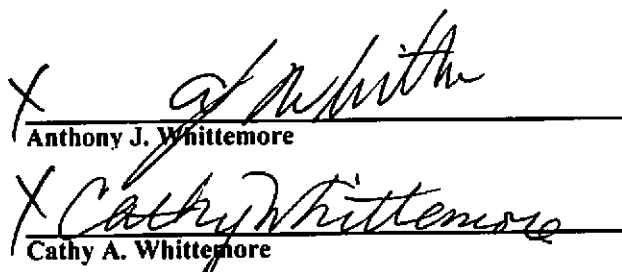 X AJ Whitt
Anthony J. Whittemore
X Cathy Whittemore
Cathy A. Whittemore